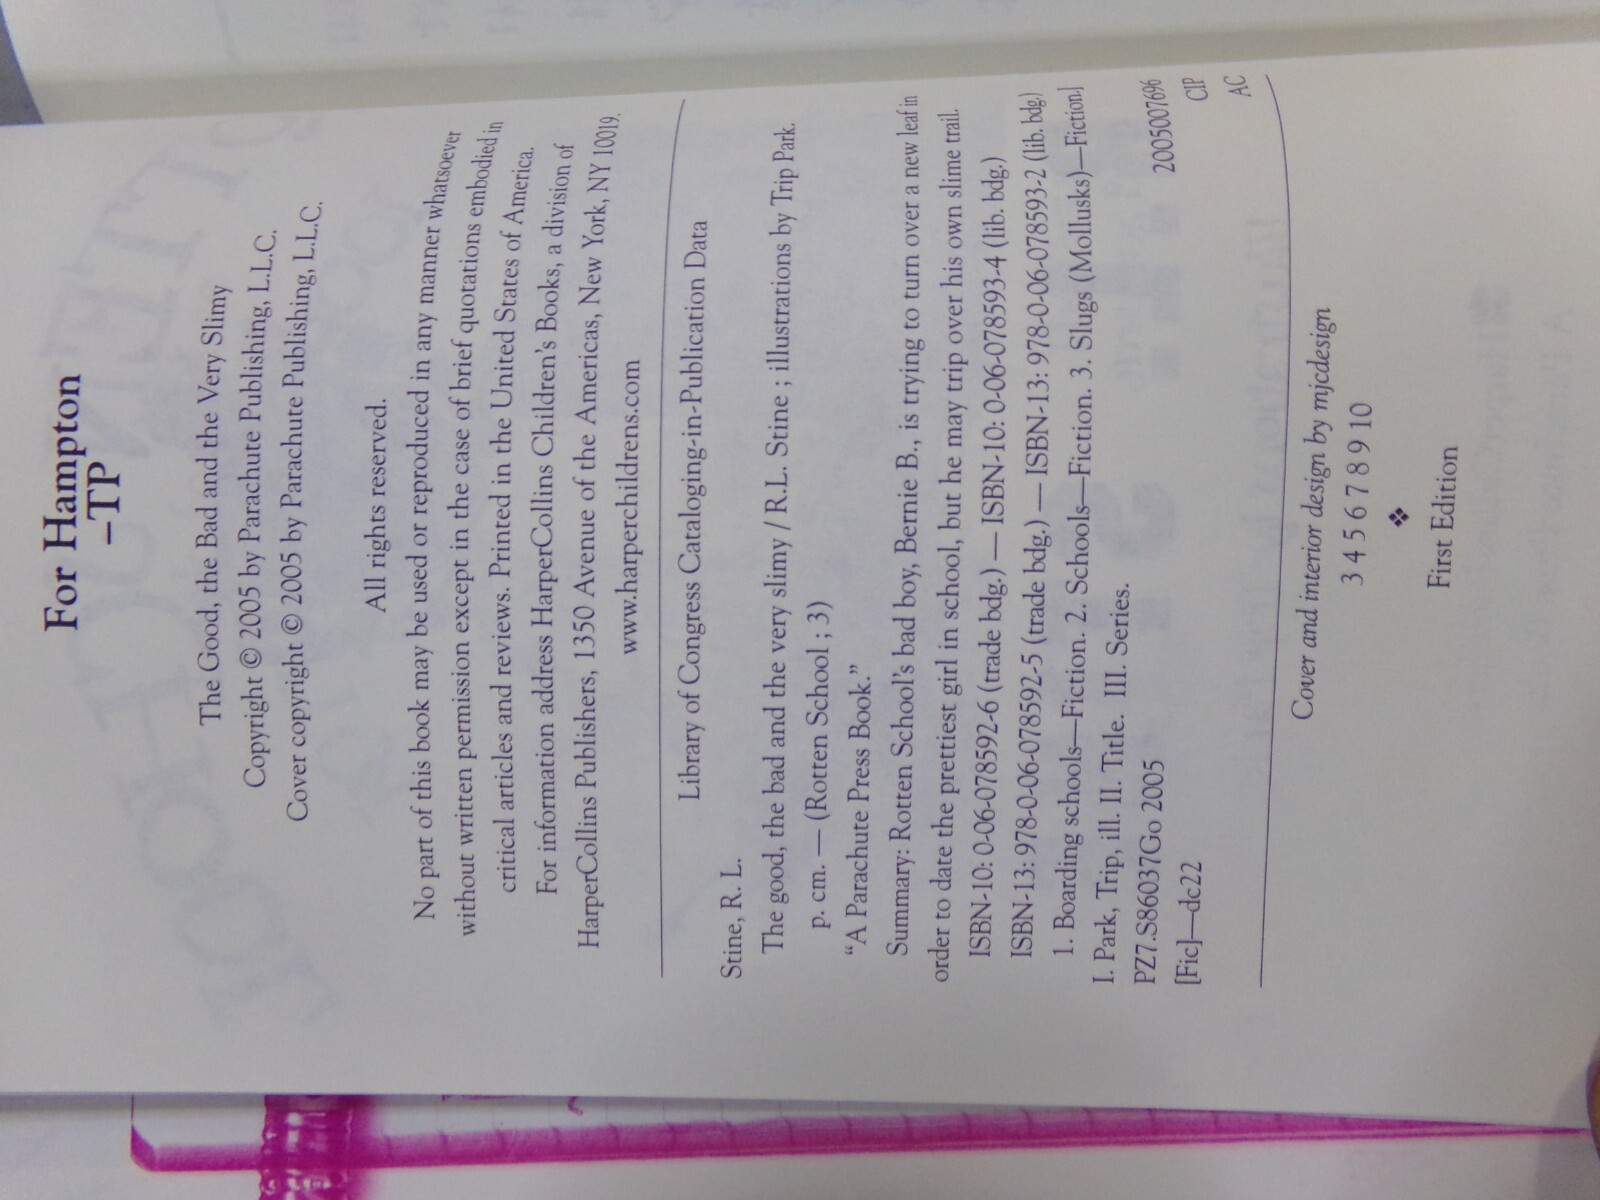 For Hampton
–TP
The Good, the Bad and the Very Slimy
Copyright © 2005 by Parachute Publishing, L.L.C.
Cover copyright © 2005 by Parachute Publishing, L.L.C.
All rights reserved.
No part of this book may be used or reproduced in any manner whatsoever
without written permission except in the case of brief quotations embodied in
critical articles and reviews. Printed in the United States of America.
For information address HarperCollins Children's Books, a division of
HarperCollins Publishers, 1350 Avenue of the Americas, New York, NY 10019.
www.harperchildrens.com
Library of Congress Cataloging-in-Publication Data
Stine, R. L.
The good, the bad and the very slimy / R.L. Stine ; illustrations by Trip Park.
p. cm. — (Rotten School ; 3)
“A Parachute Press Book.”
Summary: Rotten School's bad boy, Bernie B., is trying to turn over a new leaf in
order to date the prettiest girl in school, but he may trip over his own slime trail.
ISBN-10: 0-06-078592-6 (trade bdg.) — ISBN-10: 0-06-078593-4 (lib. bdg.)
ISBN-13: 978-0-06-078592-5 (trade bdg.) — ISBN-13: 978-0-06-078593-2 (lib. bdg.)
1. Boarding schools—Fiction. 2. Schools—Fiction. 3. Slugs (Mollusks)—Fiction.]
I. Park, Trip, ill. II. Title. III. Series.
PZ7.S86037Go 2005 2005007696
[Fic]—dc22 CIP
AC
Cover and interior design by mjcdesign
3 4 5 6 7 8 9 10
❖
First Edition